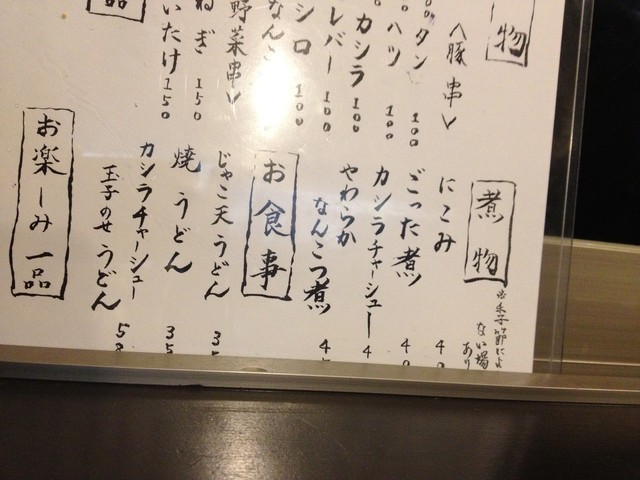 物
〈豚串〉
タン 100
ハツ 100
カシラ 100
レバー 100
シロ 100
なんこ
野菜串〉
ねぎ 150
いたけ 150
品
煮物
※季節によ
ない場
あり
にこみ 40
ごった煮 40
カシラチャーシュー 4
やわらか
なんこつ煮 45
お食事
じゃこ天うどん 35
焼うどん 35
カシラチャーシュー
玉子のせうどん 58
お楽しみ一品